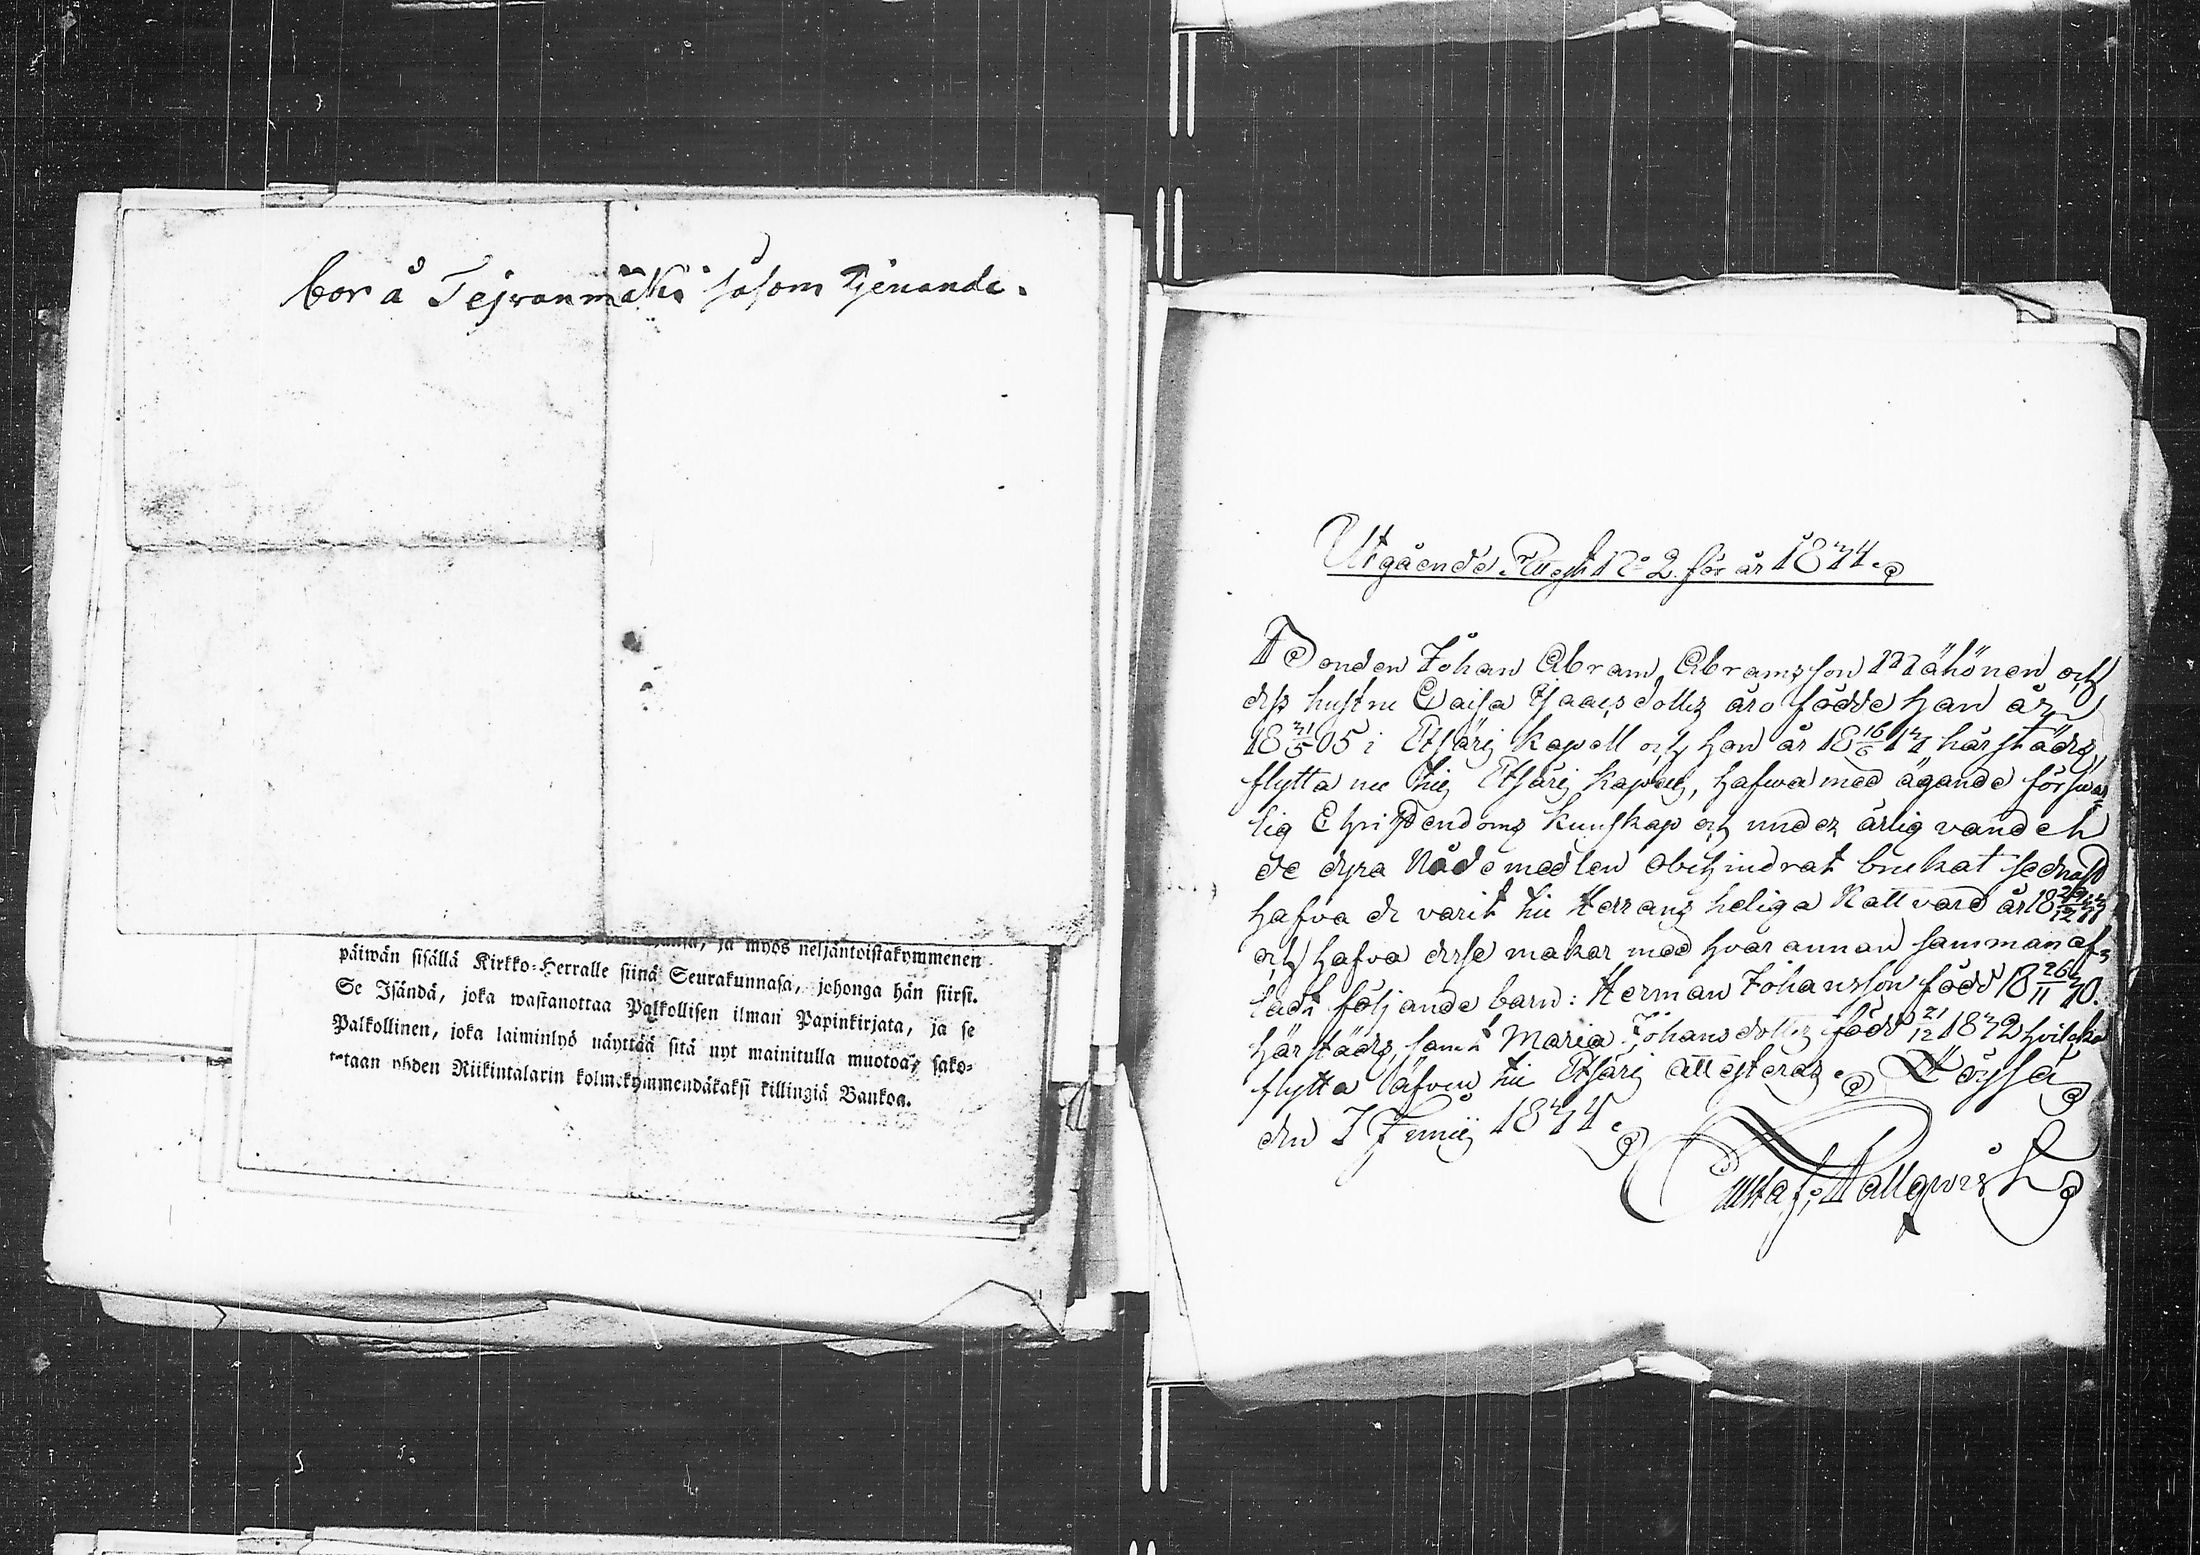 bor å Tejvanmäki såsom tjenande.
ja myös neljäntoistakymmenen
päiwän sisällä Kirkko-Herralle siinä Seurakunnasa, johonga hän siirsi.
Se Isändä, joka wastanottaa Palkollisen ilman Papinkirjata, ja se
Palkollinen, joka laiminlyö näyttää sitä nyt mainitulla muotoa, sako-
taan yhden Riikintalarin kolmekymmendäkaksi killingiä Bankoa.
Utgående No 2 för år
Johan Abram Abramsson Mähönen och
dess hustru Isaacsdotter äro födde han år
18 05 i Etseri Kapell och hon år 18 härstädes,
flytta nu till Etseri Kapell, hafwa med ägande förswar-
lig Christendoms kunskap och under ärlig vandel
de dyra Nådemedlen obehindrat brukat sednast
hafva de varit till Herrans heliga Nattvard år 18
och hafva desse makar med hvar annan sammanaf-
ladt följande barn: Herman Johansson född 18 26/11
härstädes, samt Maria Johansdotter född 21/12 18 hvilka
flytta äfven till Etseri attesteras.
den Junii
Gustaf Hallqvist